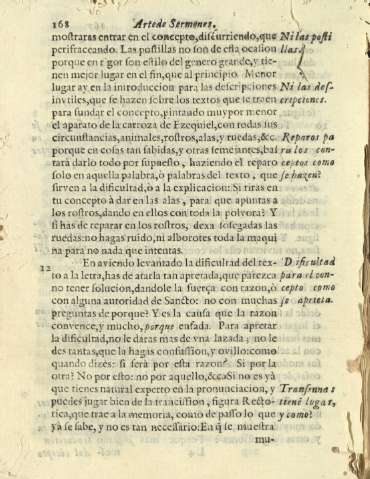 168 Arte de Sermones.
mostraras entrar en el concepto, discurriendo, que
perifraceando. Las postillas no son de esta ocasion
porque en rigor son estilo del genero grande, y tie-
nen mejor lugar en el fin, que al principio. Menor
lugar ay en la introduccion para las descripciones
inutiles, que se hazen sobre los textos que se traen
para fundar el concepto, pintando muy por menor
el aparato de la carroza de Ezequiel, con todas sus
circunstancias, animales, rostros, alas, y ruedas, &c.
porque en cosas tan sabidas, y otras semejantes, bas
tarà darlo todo por supuesto, haziendo el reparo
solo en aquella palabra, ò palabras del texto, que
sirven a la dificultad, ò a la explicacion: Si tiras en
tu concepto à dar en las alas, para que apuntas a
los rostros, dando en ellos con toda la polvora? Y
si has de reparar en los rostros, dexa sossegadas las
ruedas: no hagas ruido, ni alborotes toda la maqui
na para no nada que intentas.
12 En aviendo levantado la dificultad del tex-
to a la letra, has de atarla tan apretada, que parezca
no tener solucion, dandole la fuerça con razon, ò
con alguna autoridad de Sancto: no con muchas
preguntas de porque? Y es la causa que la razon
convence, y mucho, porque enfada. Para apretar
la dificultad, no le daras mas de vna lazada; no le
des tantas, que la hagas confussion, y ovillo: como
quando dizes: si serà por esta razon? Si por la
otra? No por esto: no por aquello, &c. Si no es yà
que tienes natural experto en la pronunciacion, y
puedes jugar bien de la transission, figura Recto-
rica, que trae a la memoria, como de passo lo que
yà se sabe, y no es tan necessario: En q̃ se muestra
mu-
Ni las posti
llas.
Ni las des-
cripciones.
Reparos pa
ra los con-
ceptos como
se hazen?
Dificultad
para el con-
cepto como
se aprieta.
Transenna
tiene lugar,
y como?